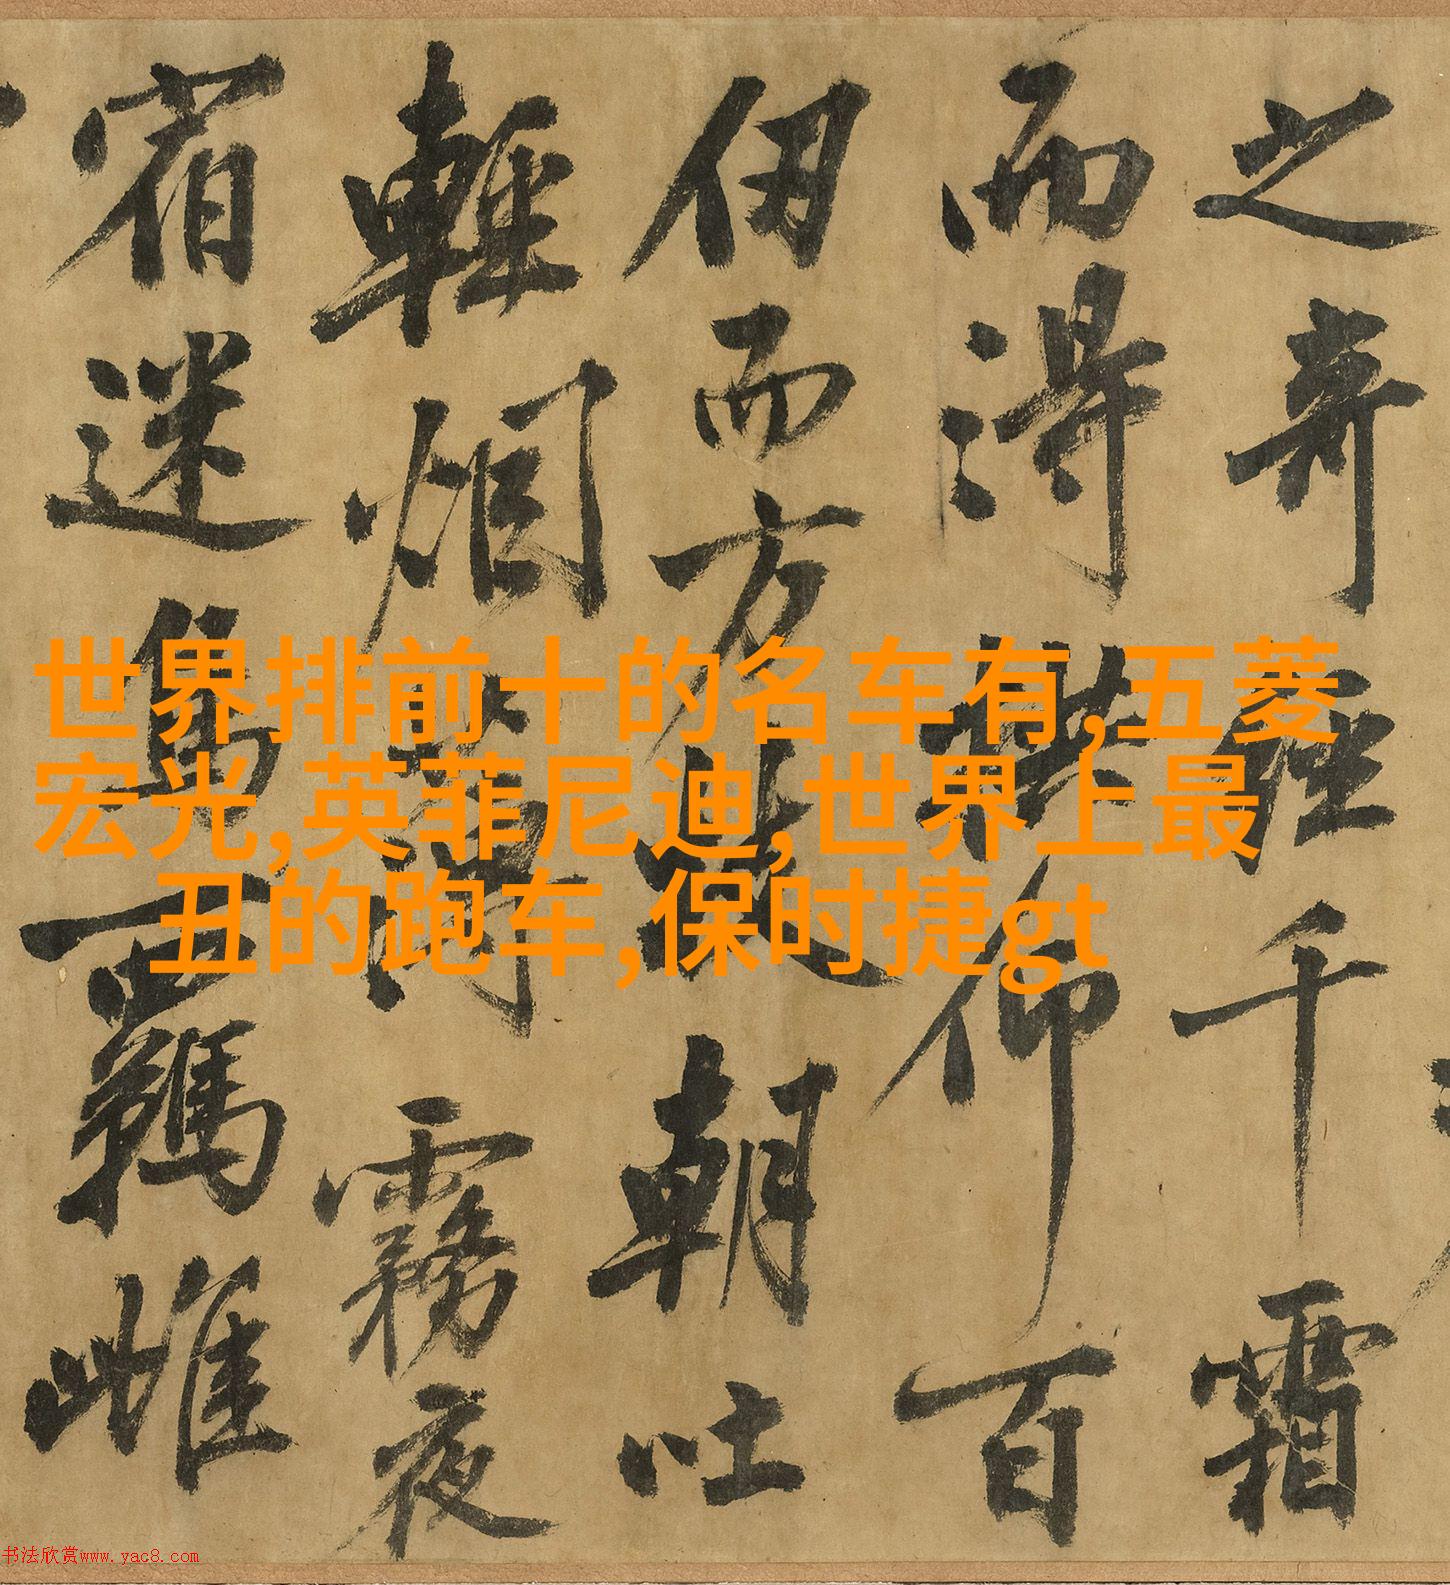 之奇經千霜
而得拱仰百
仞而方朝吐
輕烟薄霧夜
宿迷鳥羈雌
世界排前十的名车有,五菱
宏光,英菲尼迪,世界上最
丑的跑车,保时捷gt
书法欣赏www.yac8.com